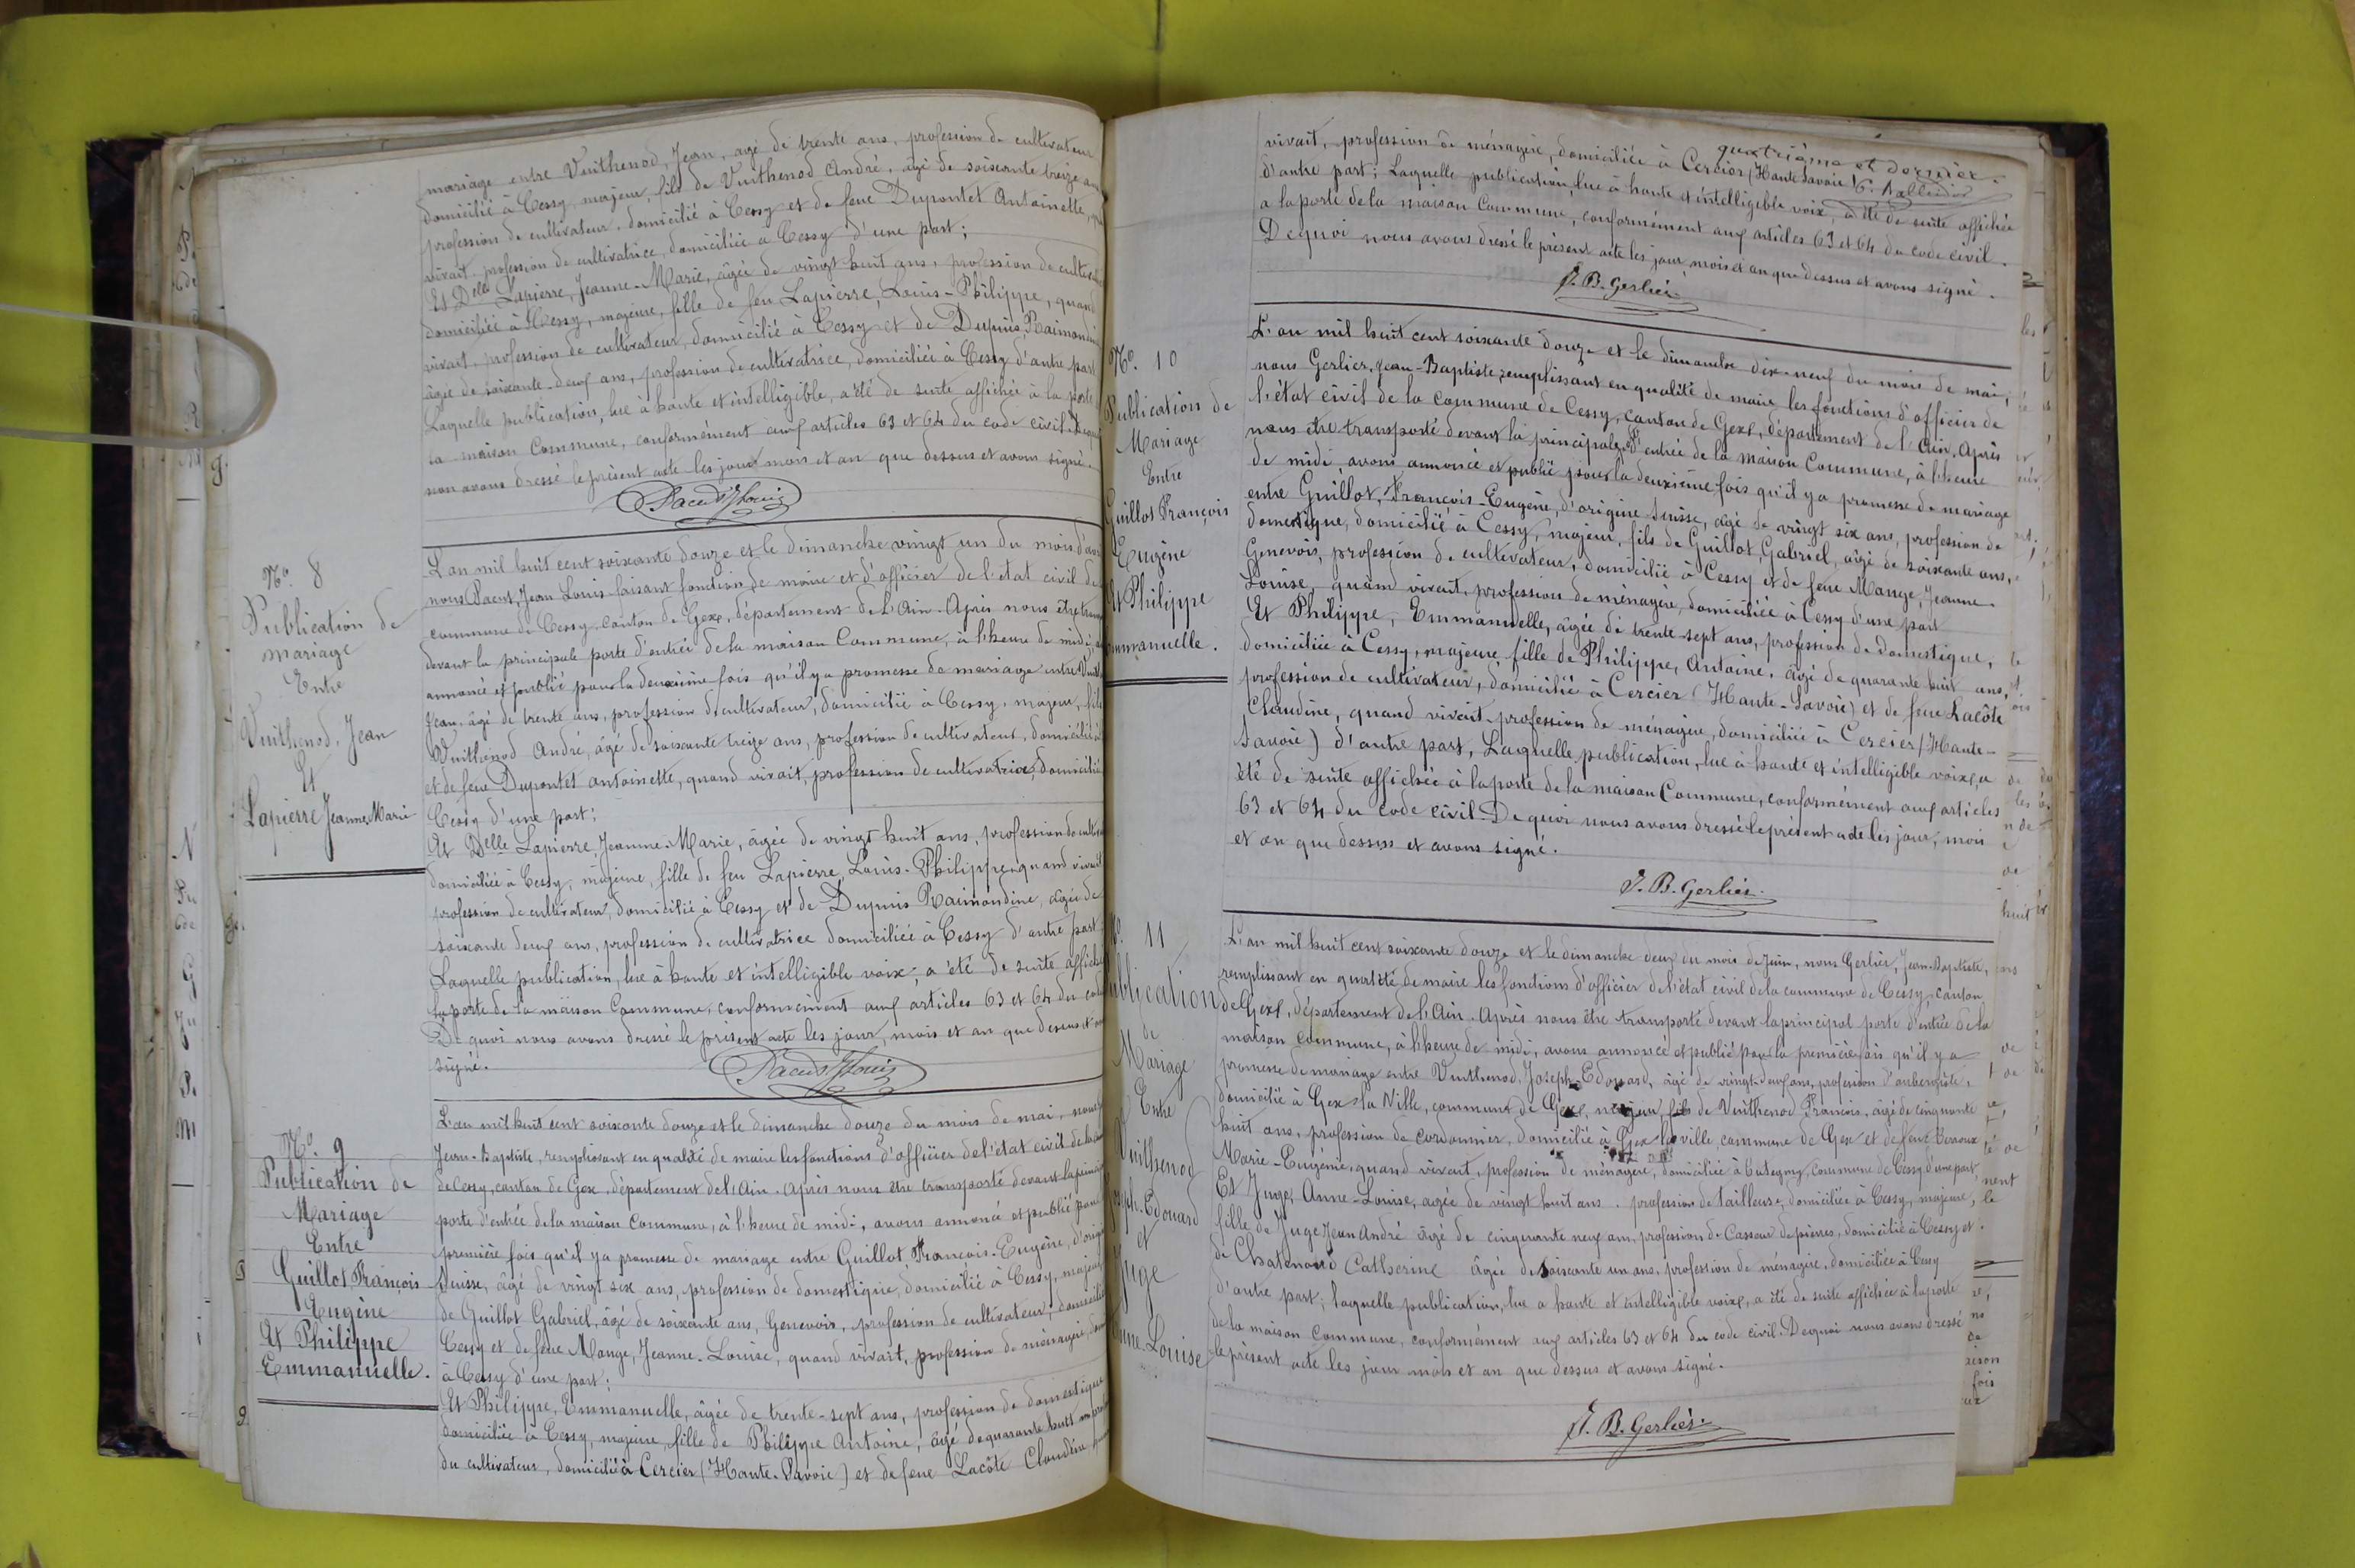 mariage entre Vuithenod, Jean, âgé de trente ans, profession de cultivateur
domicilié à Cessy, majeur, fils de Vuithenod André, âgé de soixante treize ans
profession de cultivateur, domicilié à Cessy et de feue Dupontet Antoinette,
vivait profession de cultivatrice, domiciliée à Cessy d'une part;
Et Delle Lapierre, Jeanne-Marie, âgée de vingt huit ans, profession de
domiciliée à Cessy, majeure, fille de feu Lapierre, Louis-Philippe, quand
vivait, profession de cultivateur, domicilié à Cessy et de Dupuis Raimondine
âgée de soixante-deux ans, profession de cultivatrice, domiciliée à Cessy d'autre part
Laquelle publication, lue à haute et intelligible, a été de suite affichée à la porte
la maison Commune, conformément aux articles 63 et 64 du code civil.
nous avons dressé le présent acte les jour mois et an que dessus et avons signé.
No. 8
Publication de
mariage
Entre
Vuithenod, Jean
Et
Lapierre Jeanne Marie
L'an mil huit cent soixante douze et le dimanche vingt un du mois d'avril
nous Jean Louis faisant fonction de maire et d'officier de l'état civil de
commune de Cessy canton de Gex, département de l'Ain. Après nous être
devant la principale porte d'entrée de la maison Commune, à l'heure de midi,
annoncé et publié pour la deuxième fois qu'il y a promesse de mariage entre
Jean, âgé de trente ans, profession de cultivateur, domicilié à Cessy, majeur, fils
Vuithenod André, âgé de soixante treize ans, profession de cultivateur, domicilié
et de feue Dupontet antoinette, quand vivait, profession de cultivatrice, domiciliée
Cessy d'une part;
Et Delle Lapierre, Jeanne-Marie, âgée de vingt huit ans, profession de
domiciliée à Cessy, majeure, fille de feu Lapierre, Louis-Philippe quand vivait
profession de cultivateur, domicilié à Cessy et de Dupuis Raimondine, âgée de
soixante deux ans, profession de cultivatrice domiciliée à Cessy d'autre part
Laquelle publication, lue à haute et intelligible voix, a été de suite affichée
la porte de la maison Commune, conformément aux articles 63 et 64 du code
De quoi nous avons dressé le présent acte les jour, mois et an que dessus et
signé.
No. 9
Publication de
Mariage
Entre
Guillot François
Eugène
Et Philippe
Emmanuelle.
L'an mil huit cent soixante douze et le dimanche douze du mois de mai, nous
Jean-Baptiste, remplissant en qualité de maire les fonctions d'officier de l'état civil de la
de Cessy, canton de Gex, département de l'Ain. Après nous être transporté devant la
porte d'entrée de la maison Commune, à l'heure de midi, avons annoncé et publié pour
première fois qu'il y a promesse de mariage entre Guillot, François-Eugène, d'origine
Suisse, âgé de vingt six ans, profession de domestique, domicilié à Cessy, majeur
de Guillot Gabriel, âgé de soixante ans, Genevois, profession de cultivateur, domicilié
Cessy et de feue Mange, Jeanne-Louise, quand vivait, profession de ménagère,
à Cessy d'une part;
Et Philippe, Emmanuelle, âgée de trente-sept ans, profession de domestique
domiciliée à Cessy, majeure, fille de Philippe Antoine, âgé de quarante huit ans
du cultivateur, domicilié à Cercier (Haute-Savoie) et de feue Lacôte Claudine
quatrième et dernier.
vivait, profession de ménagère, domiciliée à Cercier (Haute Savoie)
d'autre part; Laquelle publication, lue à haute et intelligible voix, a été de suite affichée
a la porte de la maison Commune, conformément aux articles 63 et 64 du code civil.
De quoi nous avons dressé le présent acte les jour, mois et an que dessus et avons signé.
J. B. Gerlier
No. 10
Publication de
Mariage
Entre
Guillot François
Eugène
Et Philippe
Emmanuelle.
L'an mil huit cent soixante douze et le dimanche dix-neuf du mois de mai,
nous Gerlier, Jean-Baptiste, remplissant en qualité de maire les fonctions d'officier de
l'état civil de la Commune de Cessy, canton de Gex, département de l'Ain. Après
nous etre transporté devant la principale d'entrée de la maison Commune, à l'heure
de midi, avons annoncé et publié pour la deuxième fois qu'il y a promesse de mariage
entre Guillot, François-Eugène, d'origine Suisse, âgé de vingt six ans, profession de
domestique, domicilié à Cessy, majeur, fils de Guillot, Gabriel, âgé de soixante ans,
Genevois, profession de cultivateur, domicilié à Cessy et de feue Mange, Jeanne-
Louise, quand vivait, profession de ménagère, domiciliée à Cessy d'une part
Et Philippe, Emmanuelle, âgée de trente-sept ans, profession de domestique,
domiciliée à Cessy, majeure, fille de Philippe, Antoine, âgé de quarante huit ans,
profession de cultivateur, domicilié à Cercier (Haute-Savoie) et de feue Lacôte
Claudine, quand vivait profession de ménagère, domiciliée à Cercier (Haute-
Savoie) d'autre part, Laquelle publication, lue à haute et intelligible voix, a
été de suite affichée à la porte de la maison Commune, conformément aux articles
63 et 64 du code civil. De quoi nous avons dressé le présent acte les jour, mois
et an que dessus et avons signé.
J. B. Gerlier
No. 11
Publication
de
Mariage
Entre
Vuithenod
Joseph-Edouard
et
Juge
Anne-Louise
L'an mil huit cent soixante douze et le dimanche deux du mois de Juin, nous Gerlier, Jean-Baptiste,
remplissant en qualité de maire les fonctions d'officier de l'état civil de la commune de Cessy, canton
de Gex, département de l'Ain. Après nous être transporté devant la principal porte d'entrée de la
maison Commune, à l'heure de midi, avons annoncé et publié pour la première fois qu'il y a
promesse de mariage entre Vuithenod, Joseph-Edouard, âgé de vingt-deux ans, profession d'aubergiste,
domicilié à Gex la Ville, commune de Gex, majeur, fils de Vuithenod François, âgé de cinquante
huit ans, profession de cordonnier, domicilié à Gex la ville commune de Gex et de feue
Marie-Eugénie, quand vivait, profession de ménagère, domiciliée à commune de Cessy d'une part
Et Juge, Anne-Louise, agée de vingt huit ans, profession de tailleuse, domiciliée à Cessy, majeure,
fille de Juge Jean André âgé de cinquante neuf ans, profession de Casseur de pierres, domicilié à Cessy et
de Catherine âgée de soixante un ans, profession de ménagère, domiciliée à Cessy
d'autre part; laquelle publication, lue a haute et intelligible voix, a été de suite affichée à la porte
de la maison Commune, conformément aux articles 63 et 64 du code civil. De quoi nous avons dressé
le présent acte les jour mois et an que dessus et avons signé.
J. B. Gerlier